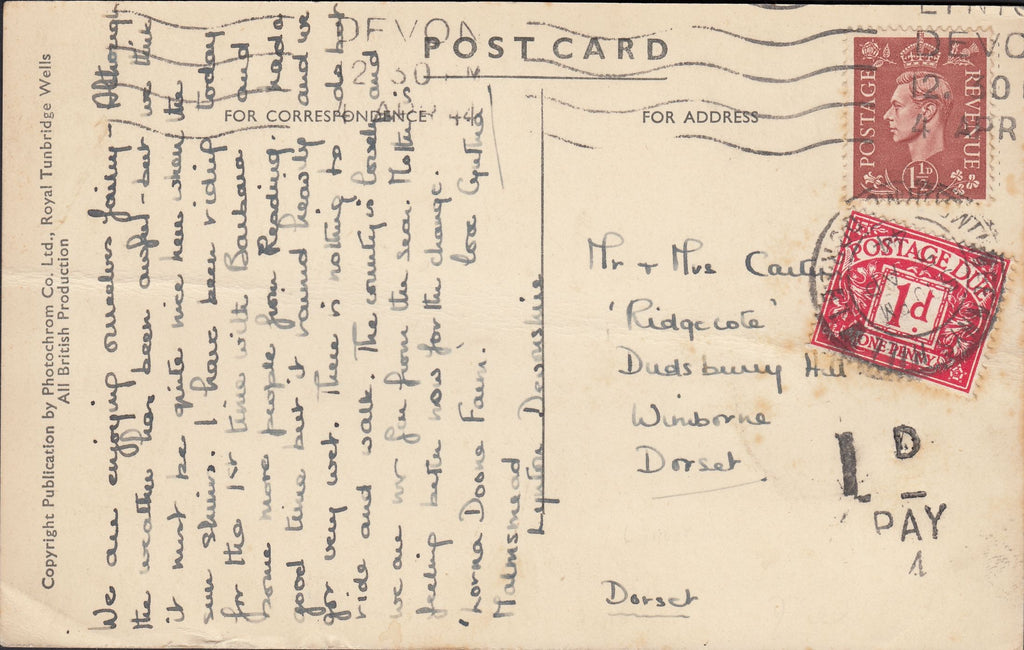 POST CARD
FOR CORRESPONDENCE
FOR ADDRESS
Copyright Publication by Photochrom Co. Ltd., Royal Tunbridge Wells
All British Production
We are enjoying ourselves fairly - Although
the weather has been awful - but we think
it must be quite nice here when the
sun shines. I have been riding today
for the 1st time with Barbara and
some more people from Reading. had a
good time but it rained heavily and we
got very wet. There is nothing to do but
ride and walk. The country is lovely and
we are not far from the sea. Mother is
feeling better now for the change.
love Cynthia
'Lorna Doone Farm.
Malmsmead
Lynton Devonshire
Mr + Mrs Carter
'Ridgecote'
Dudsbury Hill
Wimborne
Dorset
Dorset
DEVON
12.30
4 APR
DEVO
12.30
4 APR
POSTAGE
REVENUE
1½D
POSTAGE DUE
1D.
ONE PENNY
1D
PAY